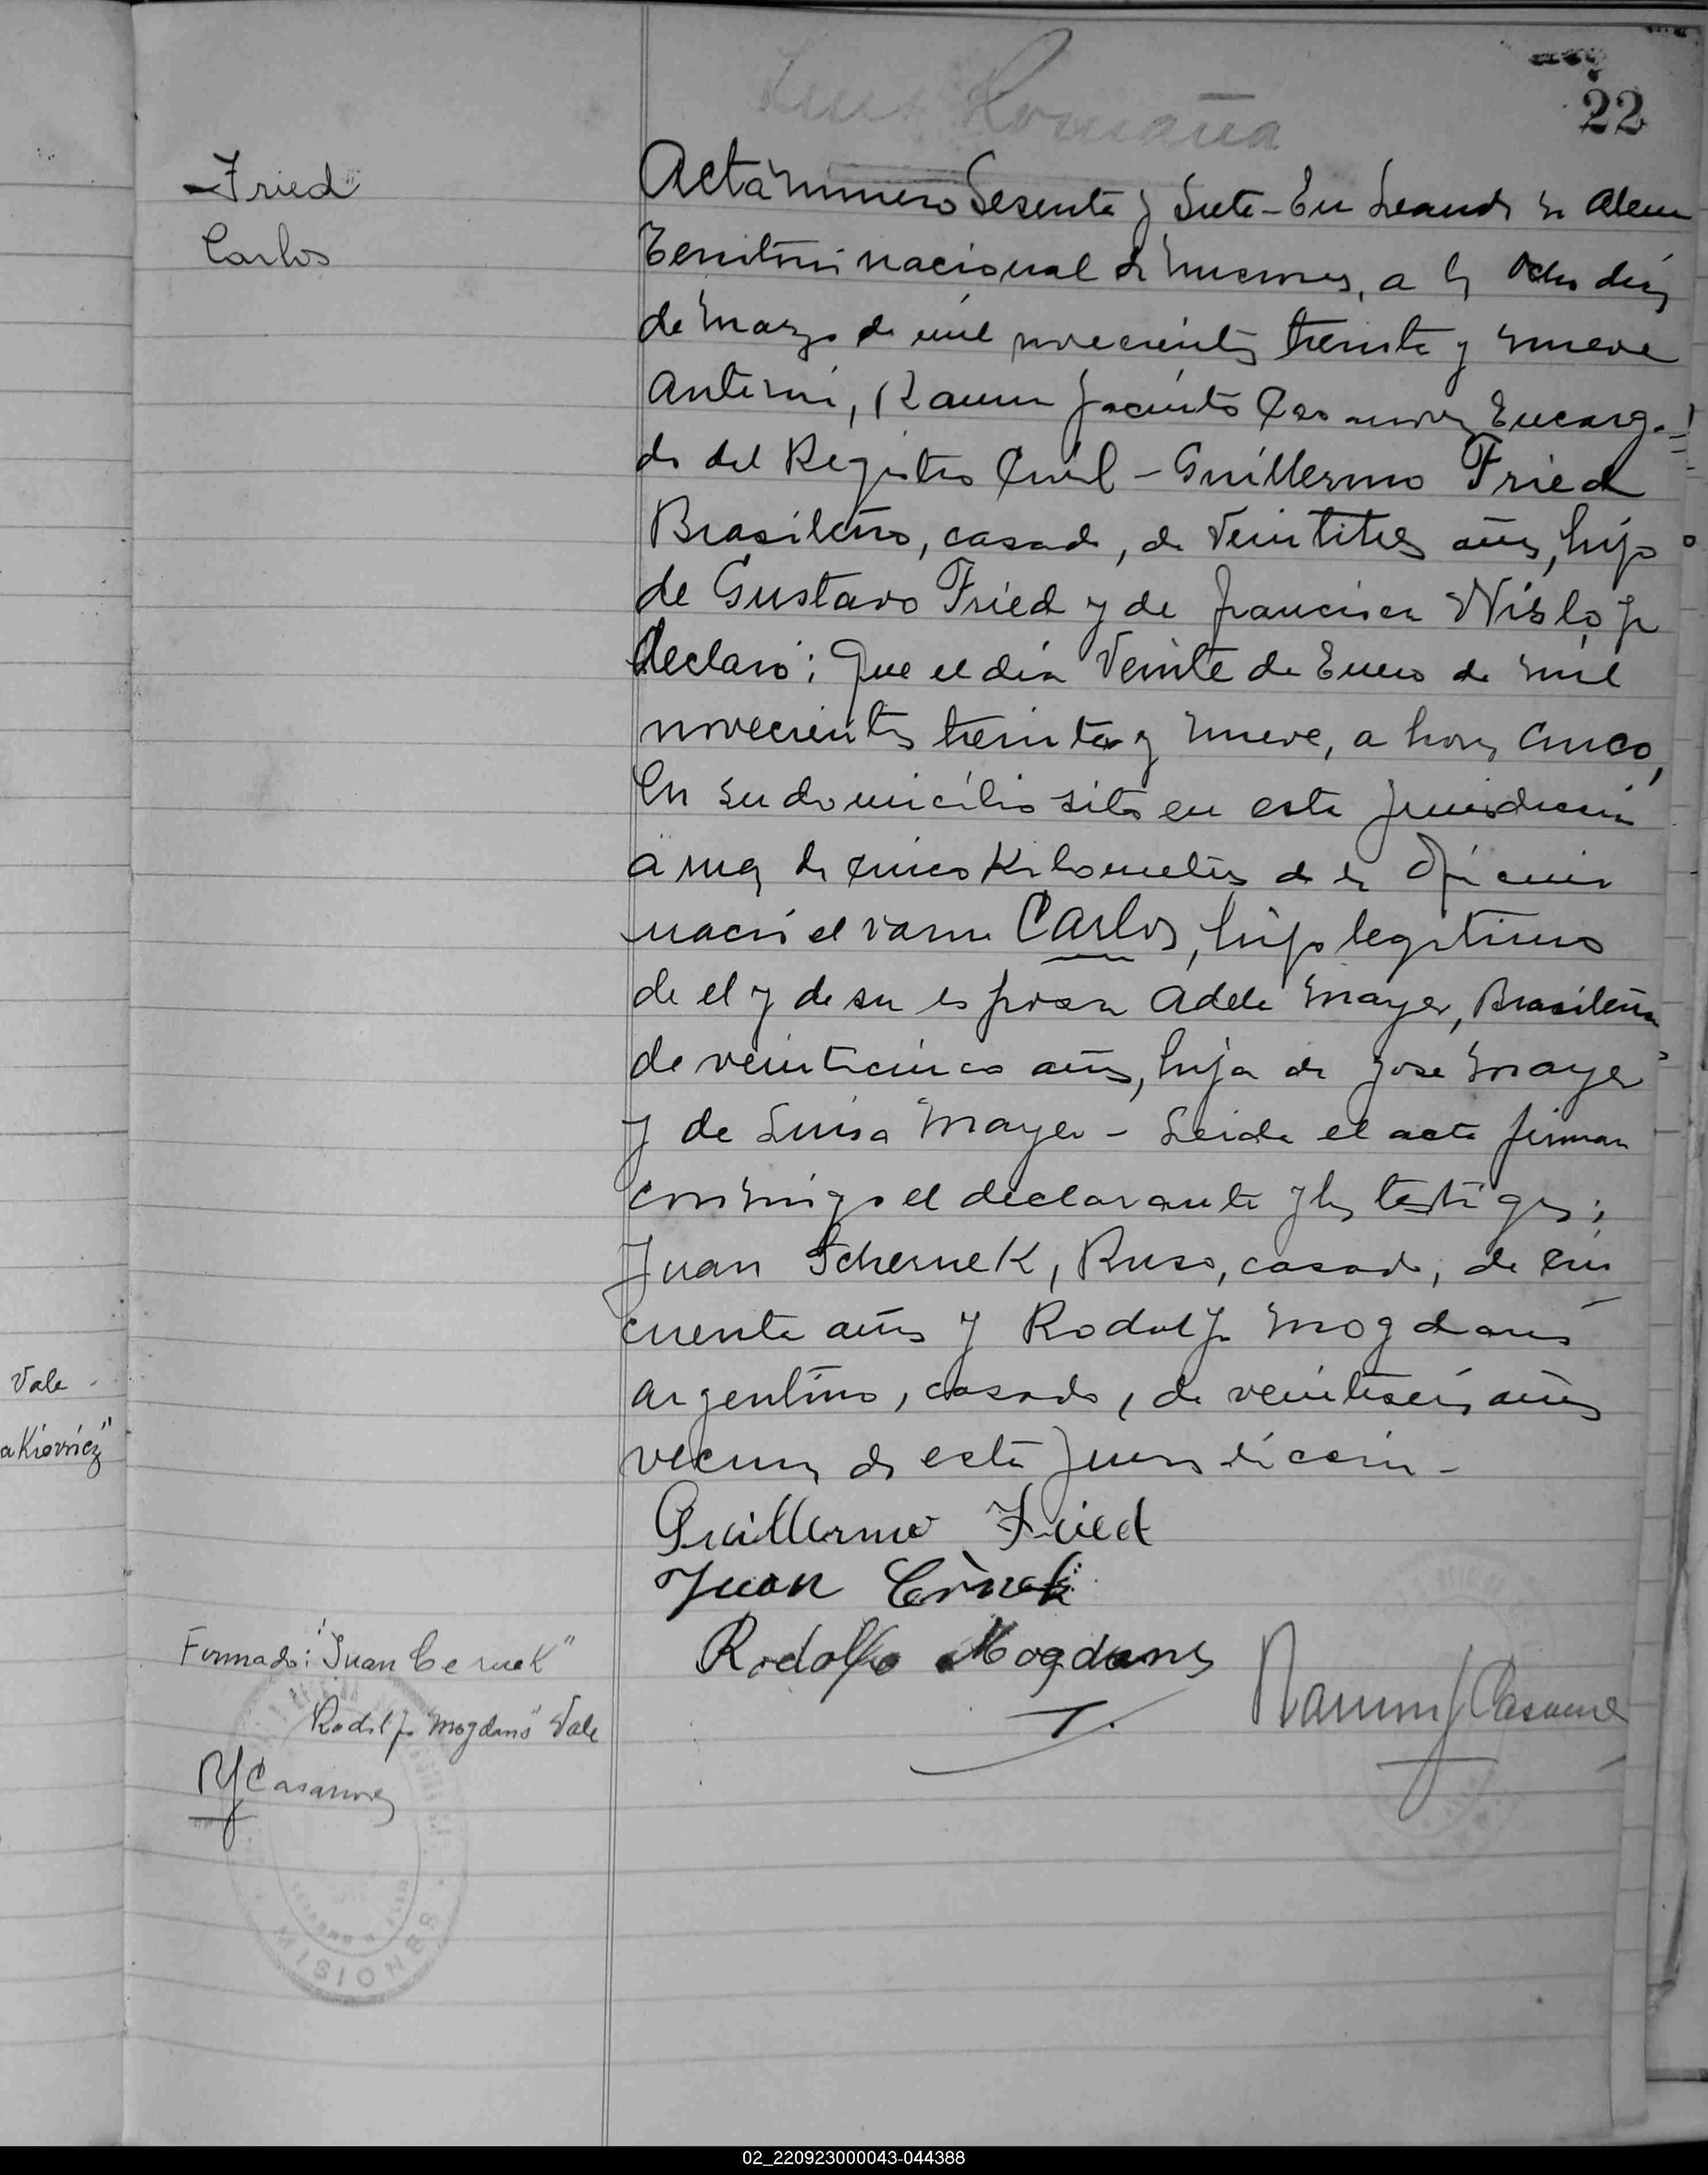 22
Fried
Carlos
Acta numero Sesenta y Siete - En Leandro N. Alem
Territorio nacional de Misiones, a los ocho dias
de Marzo de mil novecientos treinta y nueve
Ante mi, Ramon Jacinto Casanova Encarga-
do del Registro Civil - Guillermo Fried
Brasileño, casado, de Veintitres años, hijo
de Gustavo Fried y de Francisca
declaró: Que el dia Veinte de Enero de mil
novecientos treinta y nueve, a horas Cinco,
En su domicilio sito en esta jurisdiccion
a mas de cinco Kilometros de la Oficina
nació el varon Carlos, hijo legitimo
de el y de su esposa Adela Mayer, Brasileña
de veinticinco años, hija de Jose Mayer
y de Luisa Mayer - Leida el acta firman
conmigo el declarante y los testigos;
Juan Schernek, Ruso, casado, de cin
cuenta años y Rodolfo Mogdans
argentino, casado, de veintiseis años
vecinos de esta Jurisdiccion -
Guillermo Fried
Juan Cernek
Rodolfo Mogdans
Ramon J Casanova
Vale
akiewicz"
Firmado: "Juan Cernek"
Rodolfo Mogdans" Vale
RJCasanova
MISIONES
02_220923000043-044388